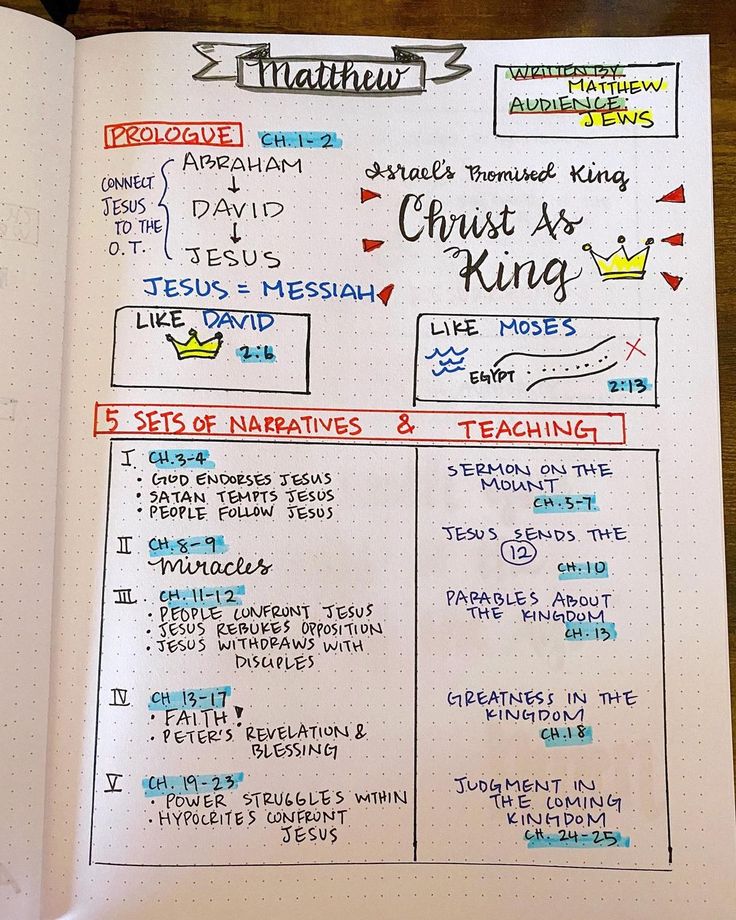 Matthew
WRITTEN BY
MATTHEW
AUDIENCE
JEWS
PROLOGUE CH. 1-2
CONNECT
JESUS
TO THE
O.T.
ABRAHAM
↓
DAVID
↓
JESUS
JESUS = MESSIAH
Israel's Promised King
Christ As
King
LIKE DAVID
2:6
LIKE MOSES
EGYPT
2:13
5 SETS OF NARRATIVES & TEACHING
I CH. 3-4
• GOD ENDORSES JESUS
• SATAN TEMPTS JESUS
• PEOPLE FOLLOW JESUS
SERMON ON THE
MOUNT
CH. 5-7
II CH. 8-9
Miracles
JESUS SENDS THE
12
CH. 10
III. CH. 11-12
• PEOPLE CONFRONT JESUS
• JESUS REBUKES OPPOSITION
• JESUS WITHDRAWS WITH
DISCIPLES
PARABLES ABOUT
THE KINGDOM
CH. 13
IV CH 13-17
• FAITH!
• PETER'S REVELATION &
BLESSING
GREATNESS IN THE
KINGDOM
CH. 18
V CH. 19-23
• POWER STRUGGLES WITHIN
• HYPOCRITES CONFRONT
JESUS
JUDGMENT IN
THE COMING
KINGDOM
CH. 24-25